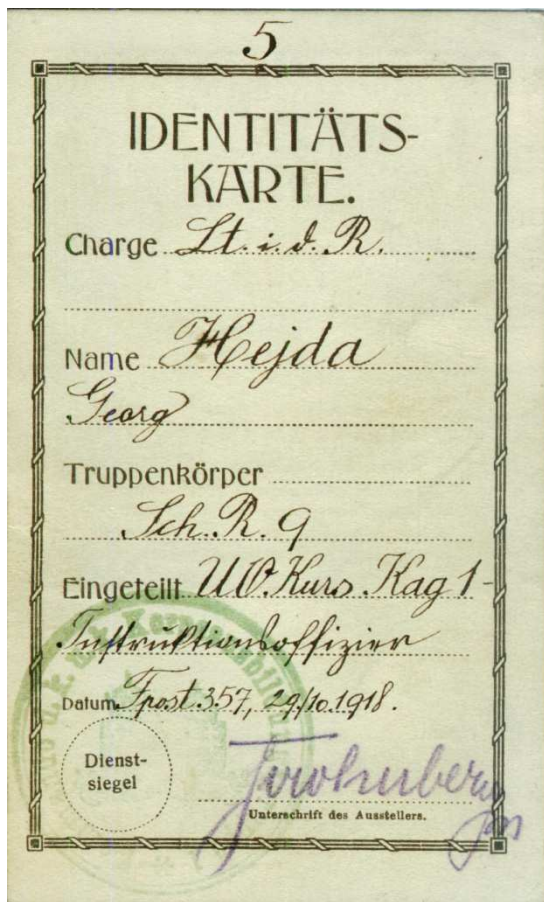 5
IDENTITÄTS-
KARTE.
Charge Lt. i. d. R.
Name Hejda
Georg
Truppenkörper
Sch. R. 9
Eingeteilt UO. Kurs. Kag 1-
Instruktionsoffizier
Datum Fpost. 357, 29/10.1918.
Dienst-
siegel
Unterschrift des Ausstellers.